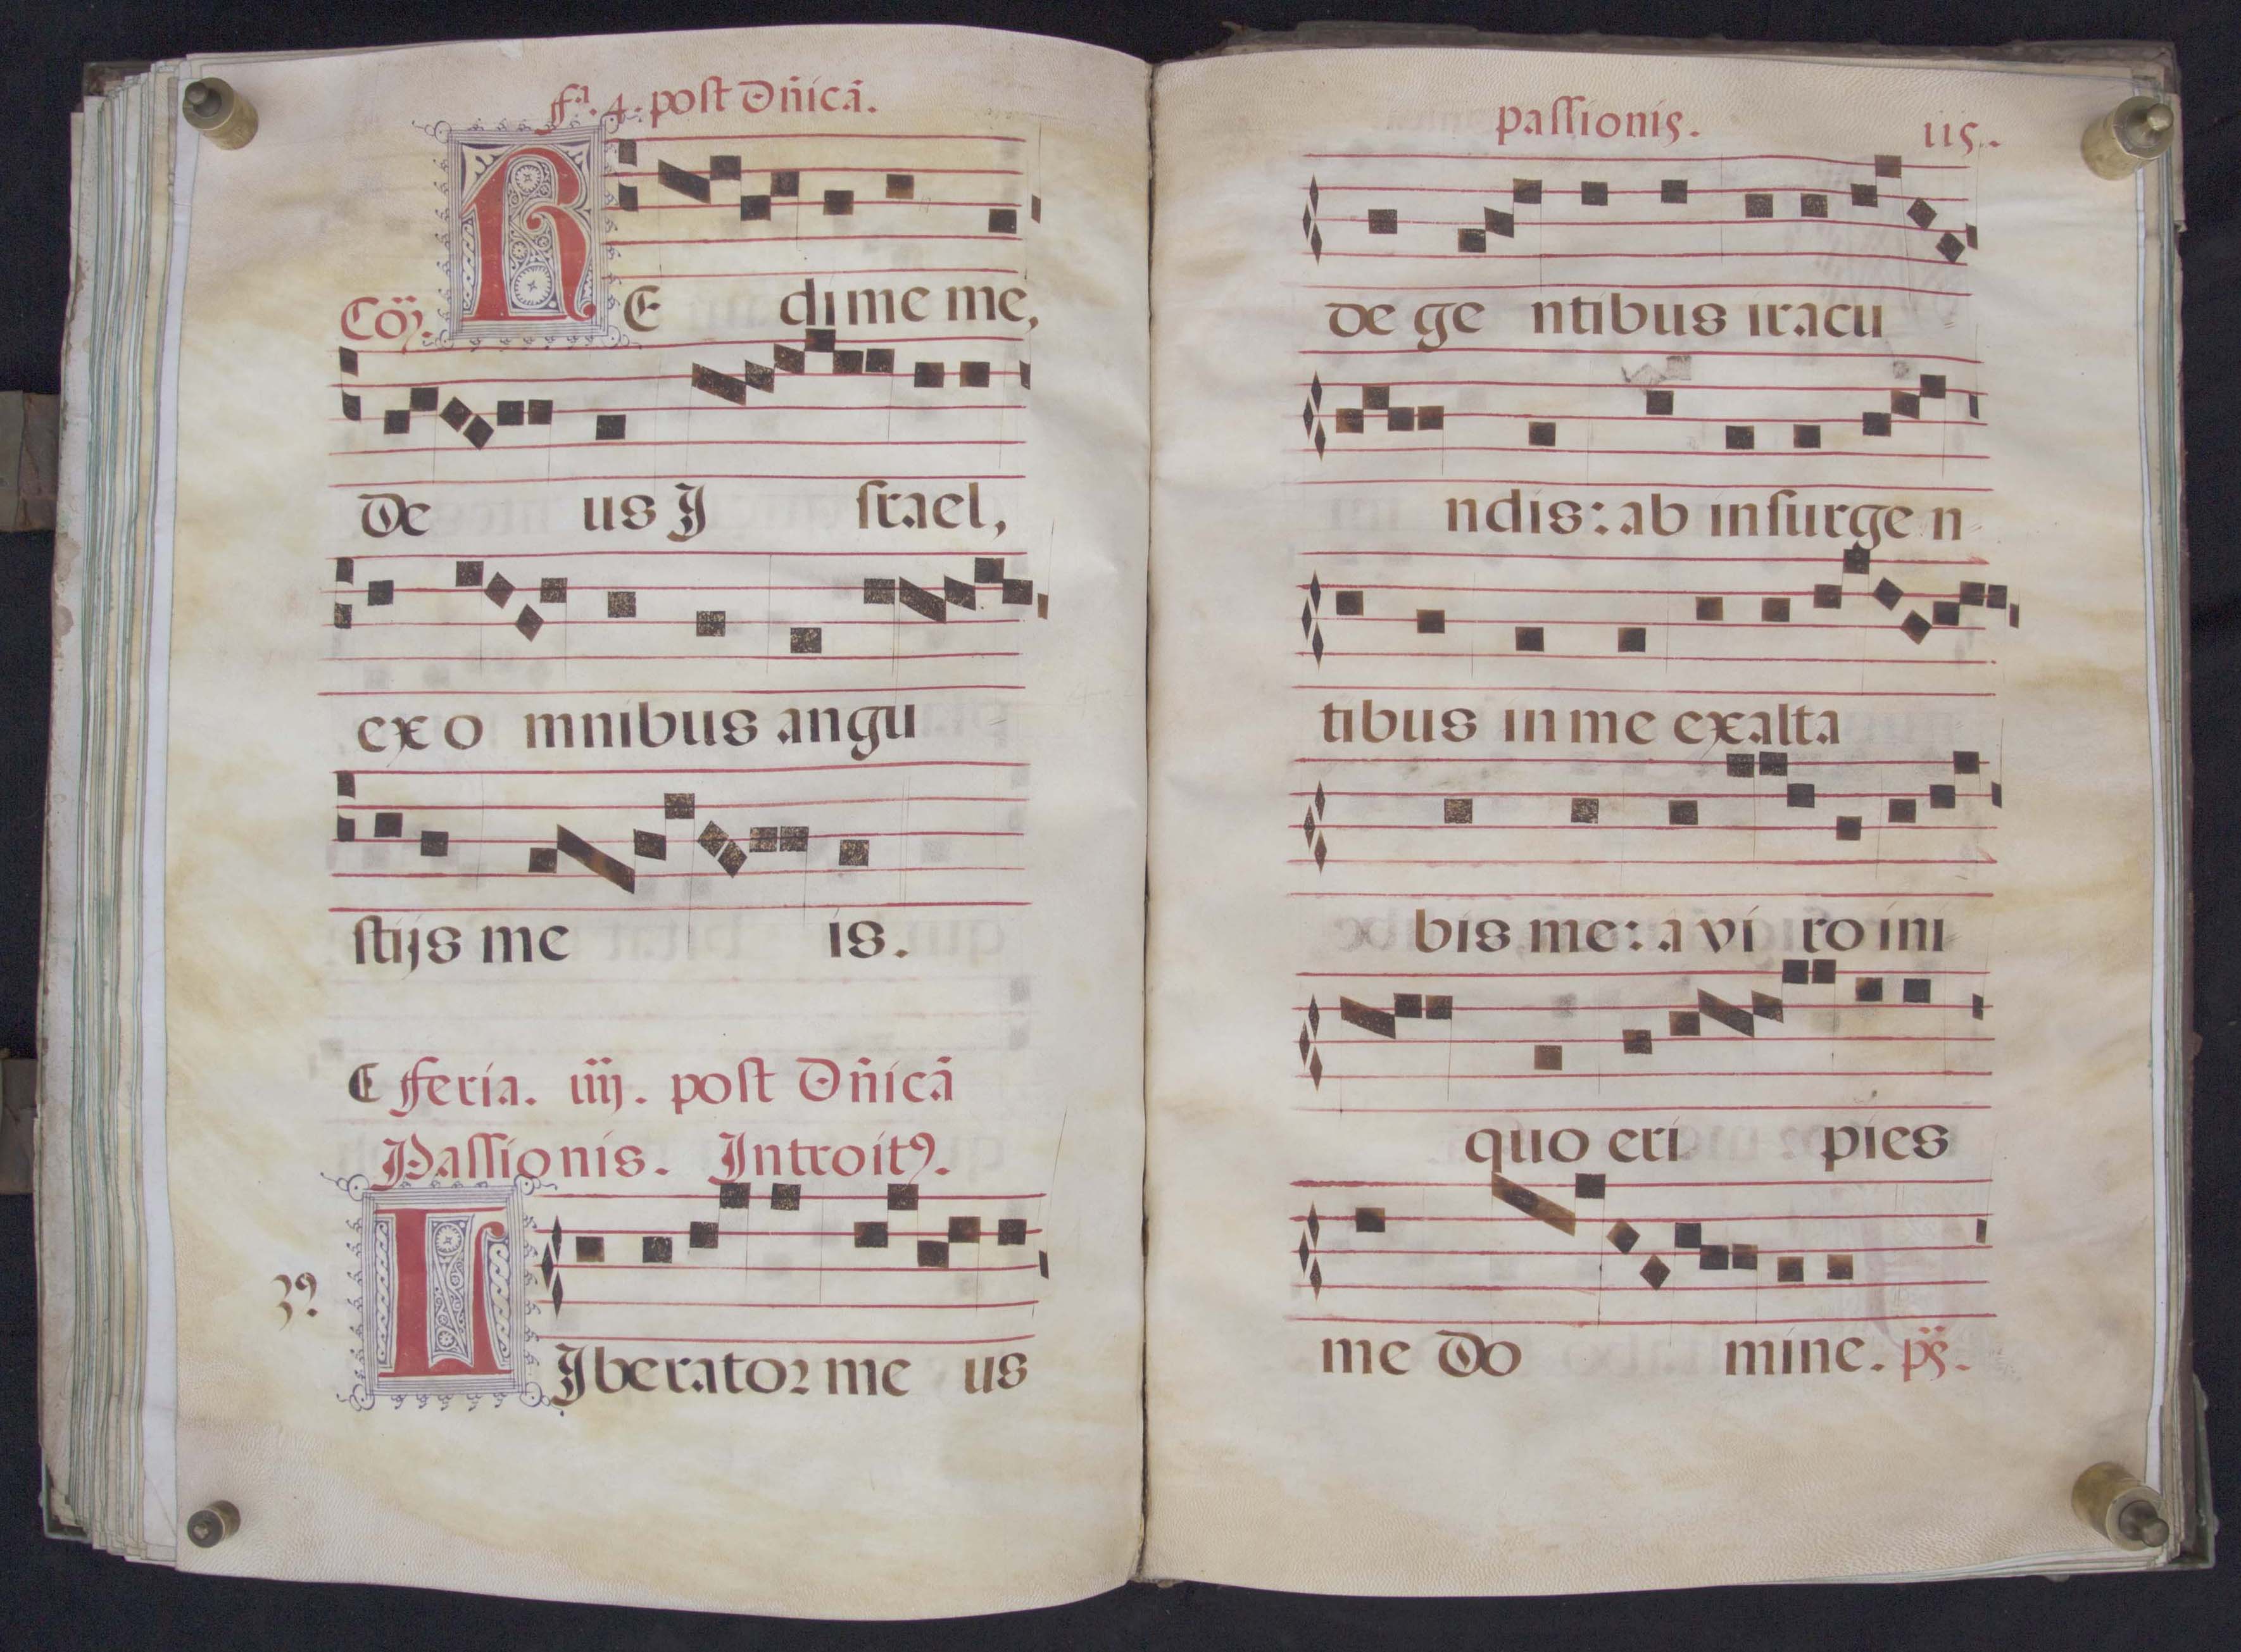 fª. 4. post Dn̄icā.
Cōı̈. RE dime me,
De us I srael,
ex o mnibus angu
stijs me is.
C feria. iiij. post Dn̄icā
Passionis. Introitꝰ.
39
LIberator me us
passionis. 115.
de ge ntibus iracu
ndis: ab insurge n=
tibus in me exalta
bis me: a vi ro ini
quo eri pies
me Do mine. ps̈.